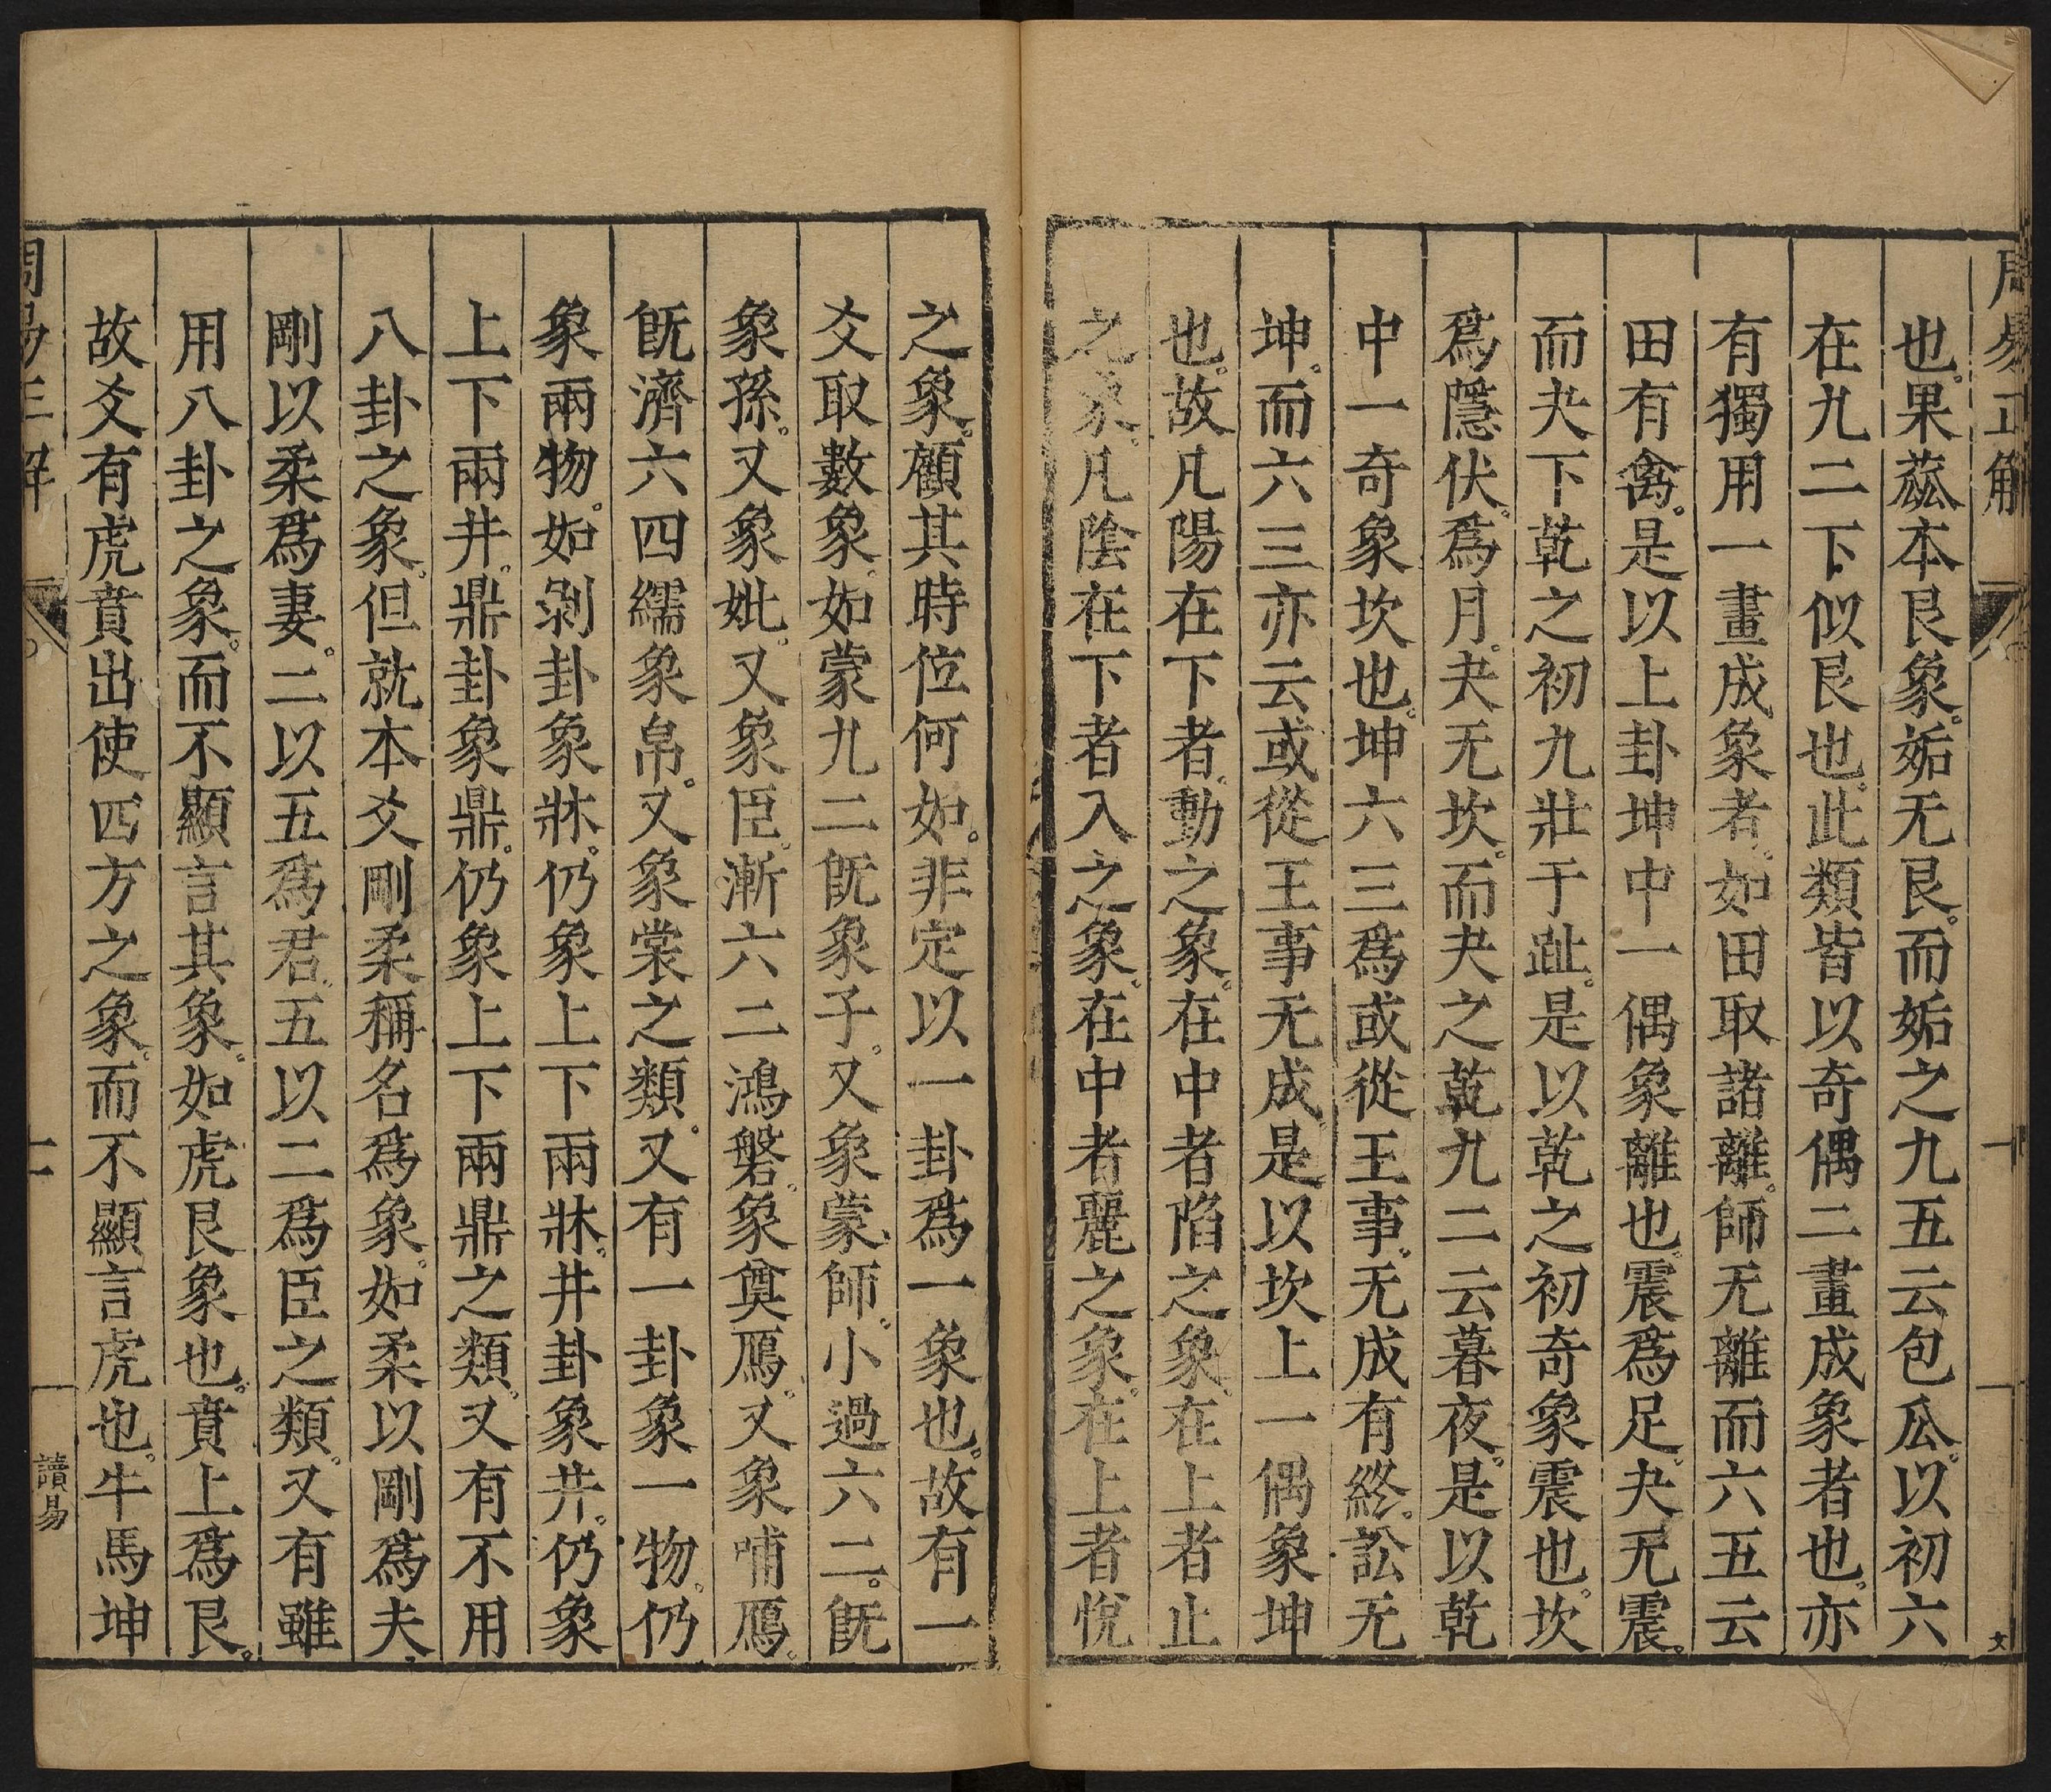 周易正解
也。果蓏本艮象。姤无艮。而姤之九五云包瓜。以初六
在九二下似艮也。此類皆以奇偶二畫成象者也。亦
有獨用一畫成象者。如田取諸離。師无離而六五云
田有禽。是以上卦坤中一偶象離也。震爲足。夬无震。
而夬下乾之初九壯于趾。是以乾之初奇象震也。坎
爲隱伏。爲月。夬无坎。而夬之乾九二云暮夜。是以乾
中一奇象坎也。坤六三爲或從王事。无成有終。訟无
坤。而六三亦云或從王事无成。是以坎上一偶象坤
也。故凡陽在下者。動之象。在中者陷之象。在上者止
之象。凡陰在下者入之象。在中者麗之象。在上者悅
之象。顧其時位何如。非定以一卦爲一象也。故有一
爻取數象。如蒙九二旣象子。又象蒙師。小過六二。旣
象孫。又象妣。又象臣。漸六二鴻磐。象奠鴈。又象哺鴈。
旣濟六四繻象帛。又象裳之類。又有一卦象一物。仍
象兩物。如剝卦象牀。仍象上下兩牀。井卦象井。仍象
上下兩井。鼎卦象鼎。仍象上下兩鼎之類。又有不用
八卦之象。但就本爻剛柔稱名爲象。如柔以剛爲夫、
剛以柔爲妻。二以五爲君。五以二爲臣之類。又有雖
用八卦之象。而不顯言其象。如虎艮象也。賁上爲艮。
故爻有虎賁出使四方之象。而不顯言虎也。牛馬坤
周易正解
十一
讀易